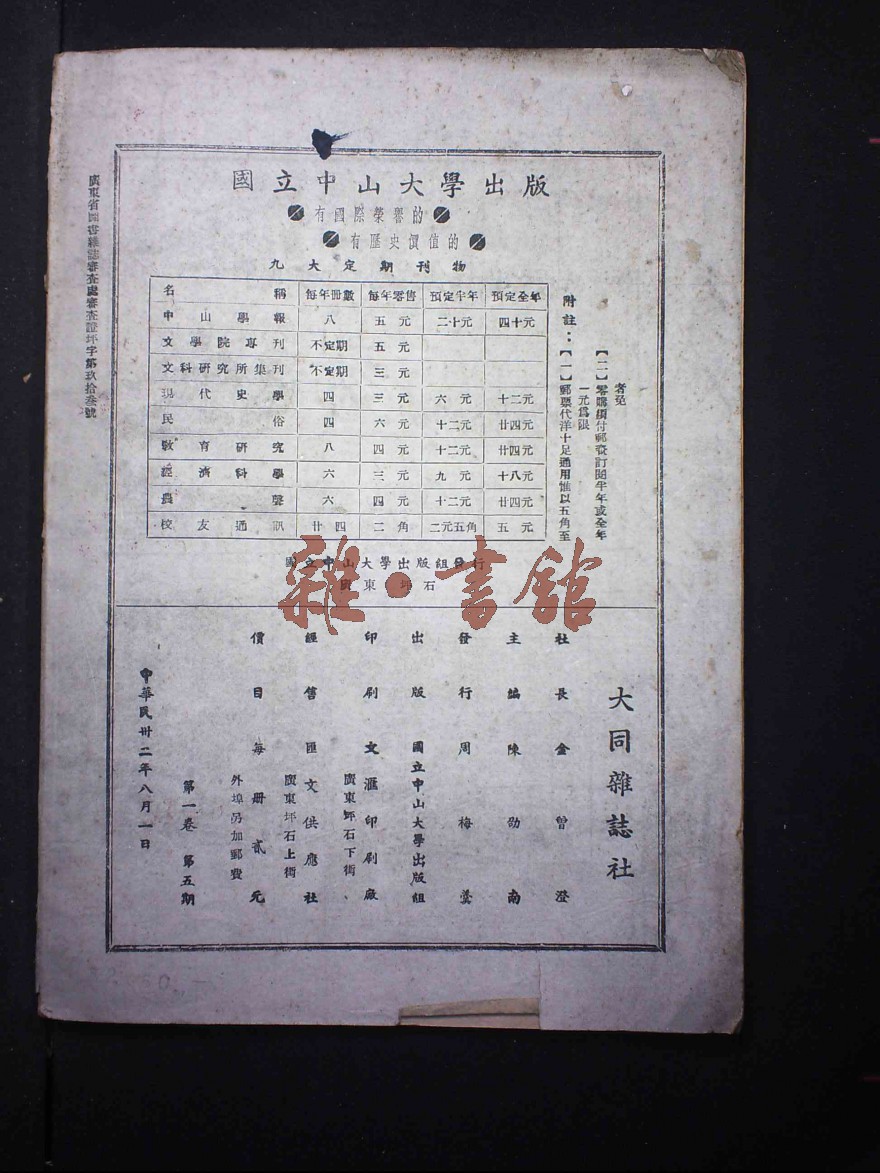 國立中山大學出版
有國際榮譽的
有歷史價值的
九大定期刊物
名稱 每年冊數 每年零售 預定半年 預定全年
中山學報 八 五元 二十元 四十元
文學院專刊 不定期 五元
文科研究所集刊 不定期 三元
現代史學 四 三元 六元 十二元
民俗 四 六元 十二元 廿四元
教育研究 八 四元 十二元 廿四元
經濟科學 六 三元 九元 十八元
農聲 六 四元 十二元 廿四元
校友通訊 廿四 二角 二元五角 五元
附註：【一】郵票代洋十足通用惟以五角至
一元為限
【二】零購須付郵資訂閱半年或全年
者免
國立中山大學出版組發行
廣東坪石
雜·書館
大同雜誌社
社長金曾澄
主編陳劭南
發行周梅羹
出版國立中山大學出版組
印刷文滙印刷廠
廣東坪石下街
經售匯文供應社
廣東坪石上街
價目每冊貳元
外埠另加郵費
第一卷 第五期
中華民卅二年八月一日
廣東省圖書雜誌審查處審查證坪字第玖拾叁號